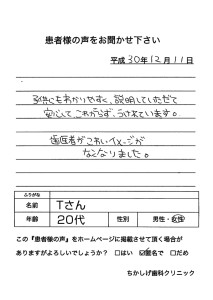 患者様の声をお聞かせ下さい
平成30年12月11日
子供にもわかりやすく、説明していただて
安心して、これからず、うけれています。
歯医者がこわいイメージが
なくなりました。
ふりがな
名前 Tさん
年齢 20代 性別 男性・女性
この『患者様の声』をホームページに掲載させて頂く場合が
ありますがよろしいでしょうか? □はい ☑匿名で □だめ
ちかしげ歯科クリニック